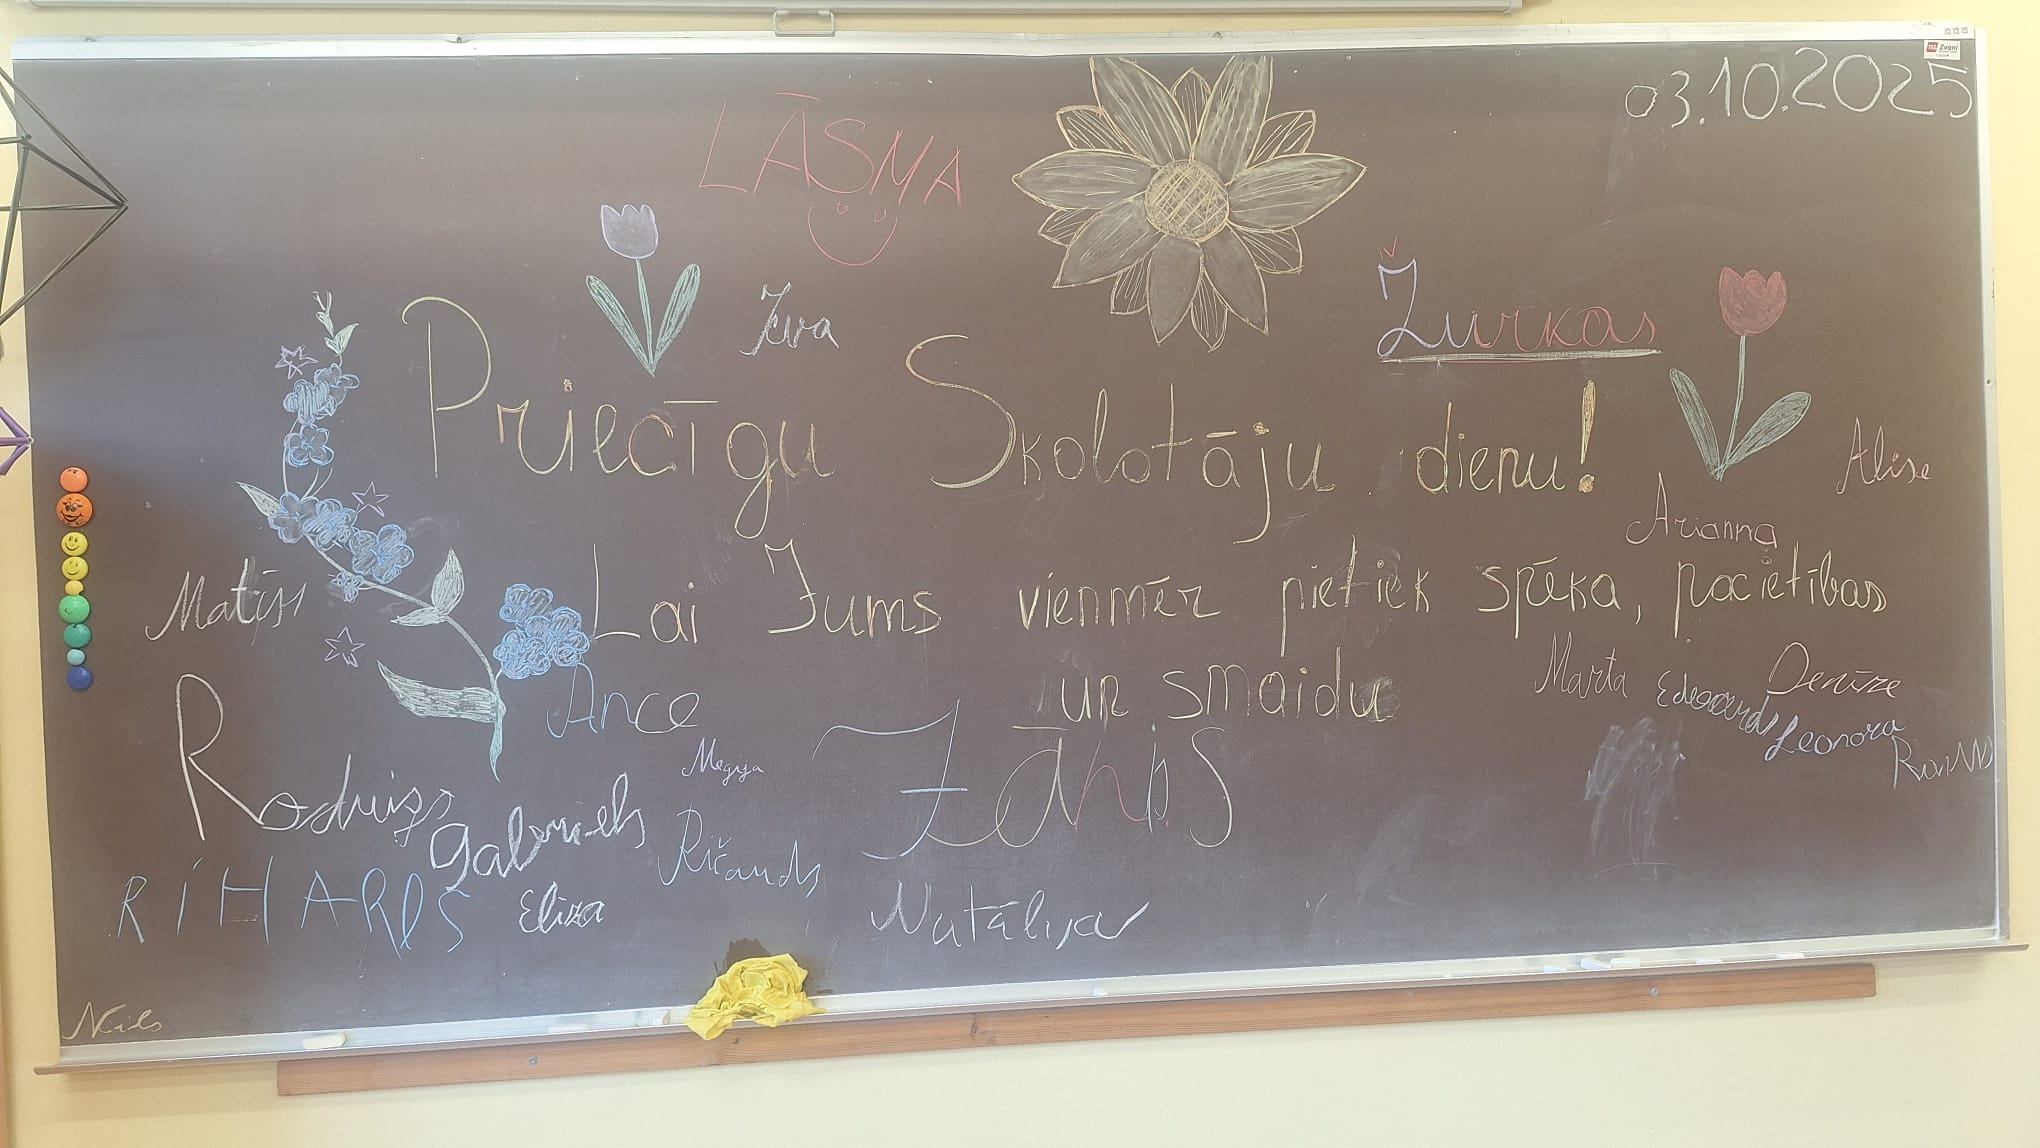 112 Zvani
03.10.2025
LĀSMA
Ieva
Žurkas
Priecīgu Skolotāju dienu!
Alise
Arianna
Lai Jums vienmēr pietiek spēka, pacietības
un smaidu
Matīss
Marta
Edvards
Denīze
Leonora
Ance
Megija
Jānis
Rodrigo
Gabriels
Ričards
RIHARDS
Elīza
Natālija
Nils